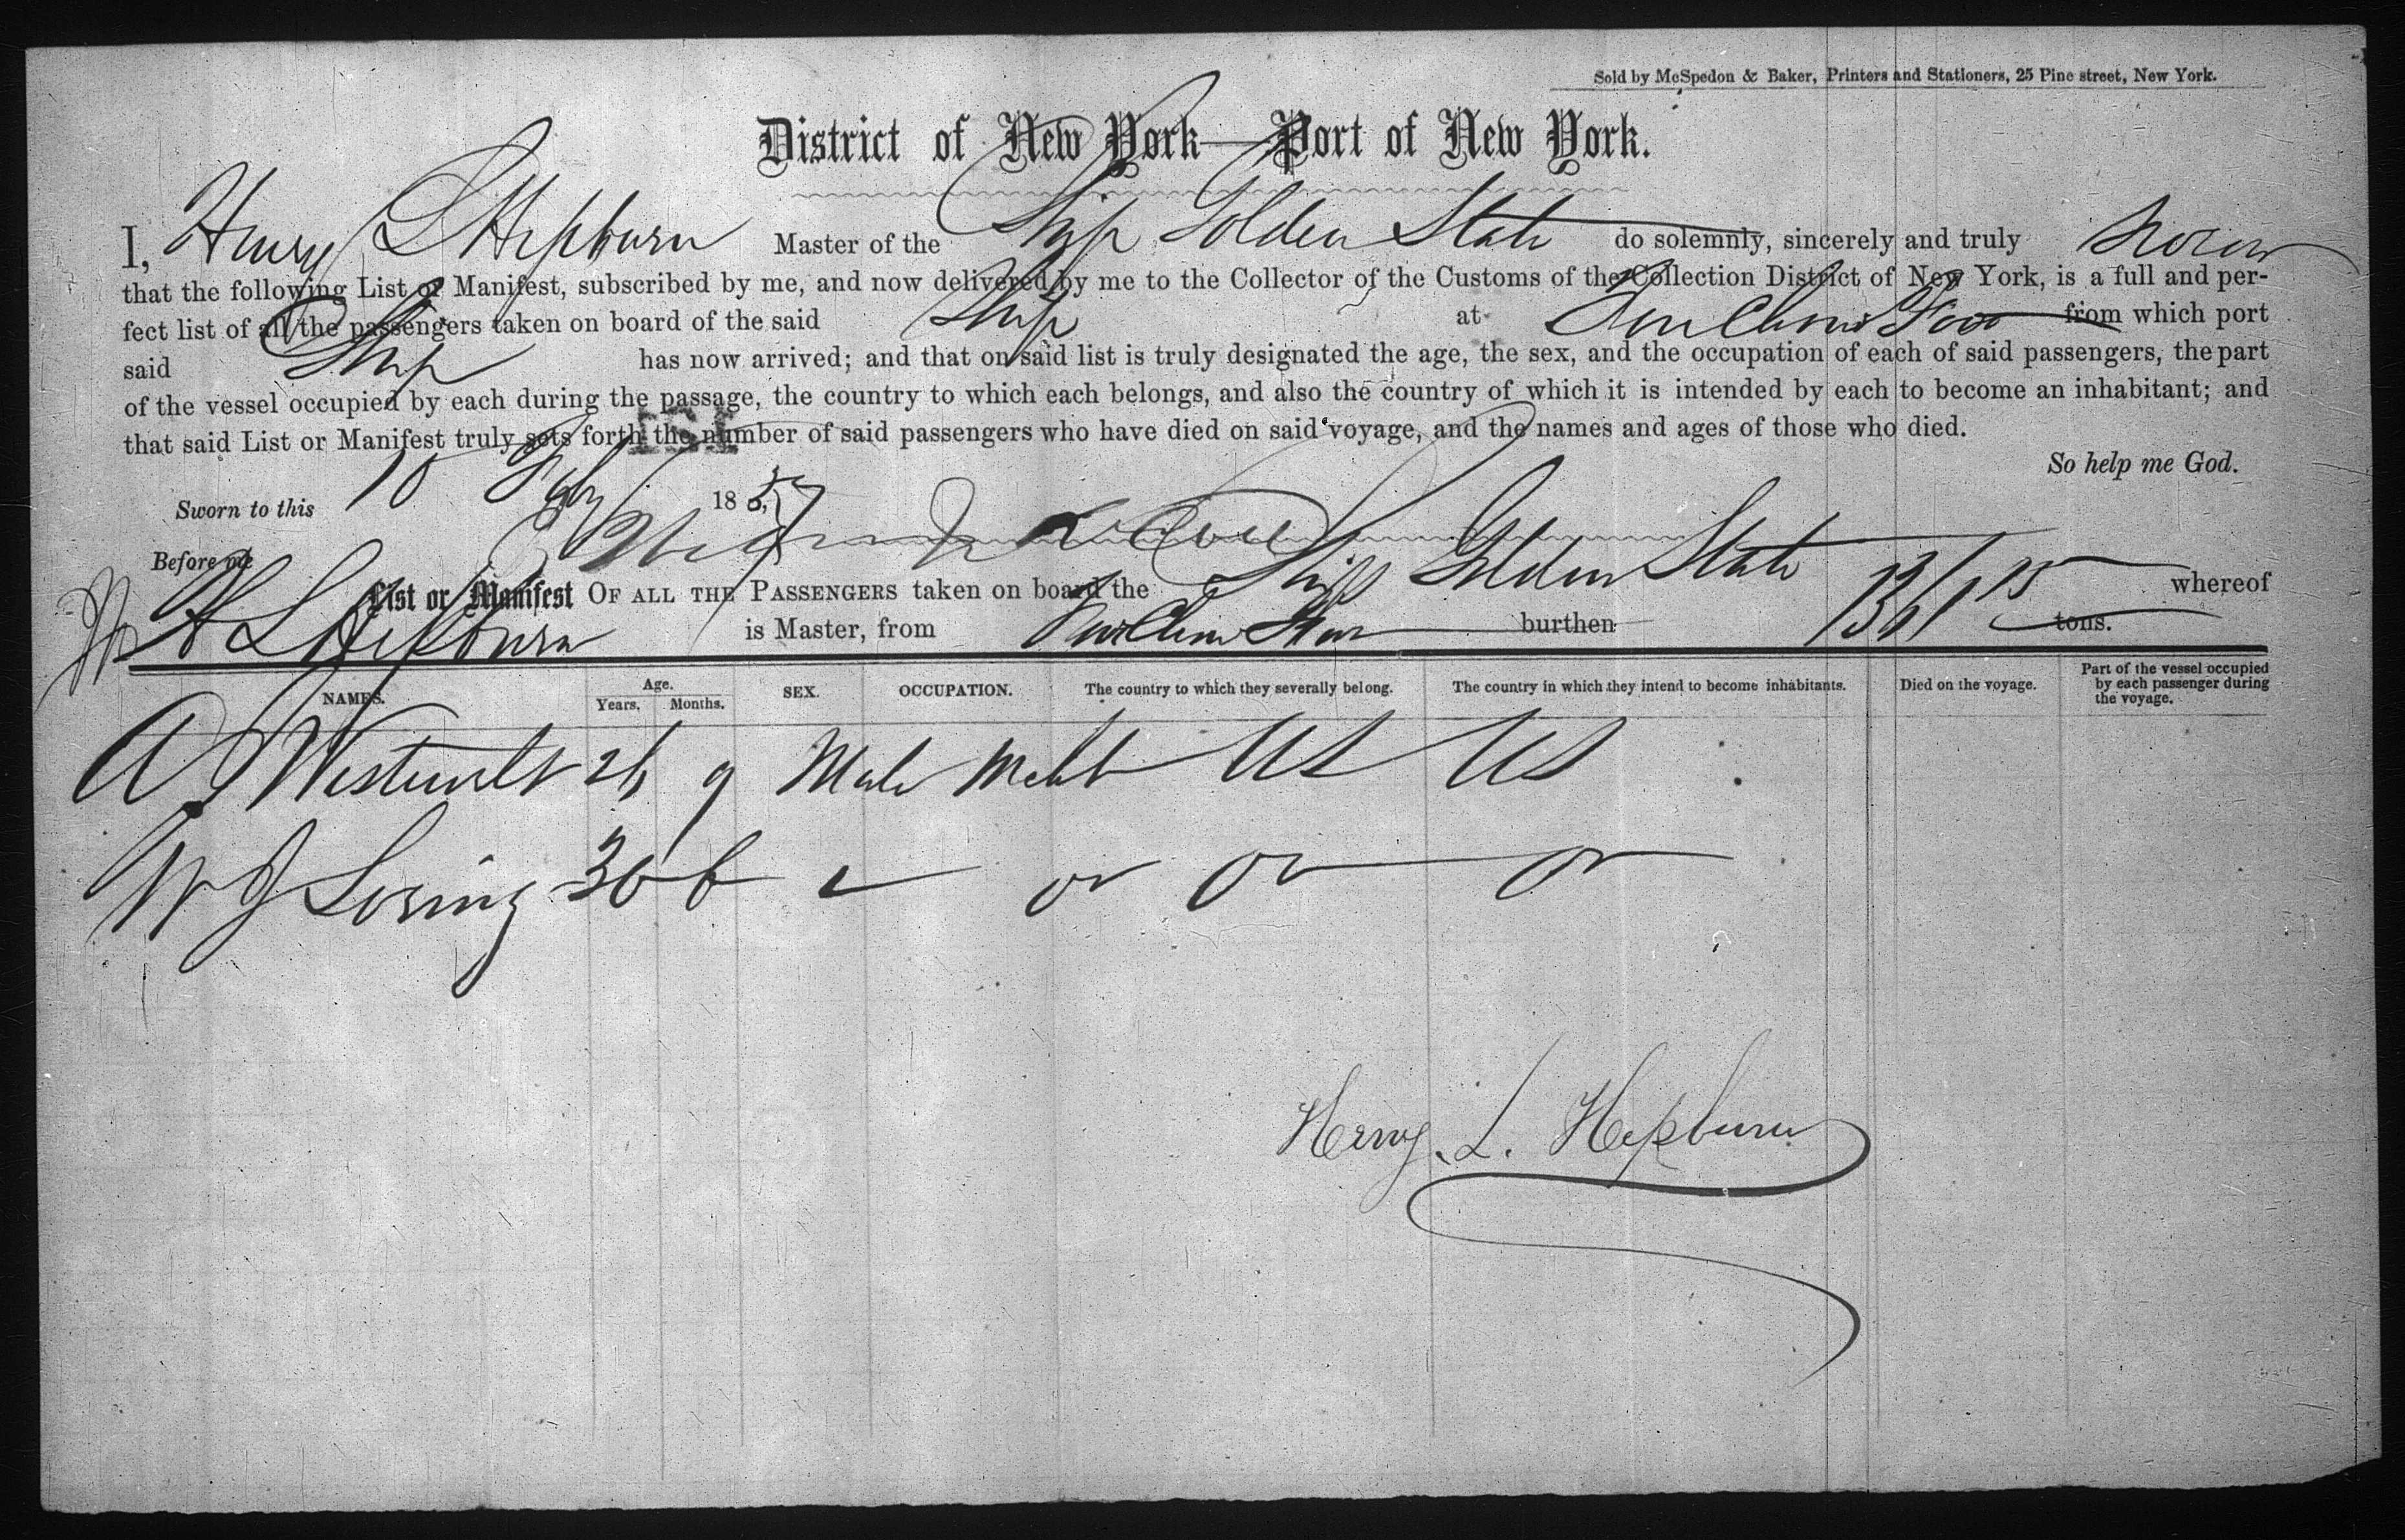 Sold by McSpedon & Baker, Printers and Stationers, 25 Pine street, New York.
District of New York—Port of New York.
I, Henry L Hepburn Master of the Ship Golden State do solemnly, sincerely and truly swear
that the following List or Manifest, subscribed by me, and now delivered by me to the Collector of the Customs of the Collection District of New York, is a full and per-
fect list of all the passengers taken on board of the said Ship at Fou Chow Foo from which port
said Ship has now arrived; and that on said list is truly designated the age, the sex, and the occupation of each of said passengers, the part
of the vessel occupied by each during the passage, the country to which each belongs, and also the country of which it is intended by each to become an inhabitant; and
that said List or Manifest truly sets forth the number of said passengers who have died on said voyage, and the names and ages of those who died.
So help me God.
Sworn to this 10 Feby 1857
Before me
List or Manifest OF ALL THE PASSENGERS taken on board the Ship Golden State whereof
H L Hepburn is Master, from Fou Chow Foo burthen 1361 tons.
NAMES. Age. Years. Months. SEX. OCCUPATION. The country to which they severally belong. The country in which they intend to become inhabitants. Died on the voyage. Part of the vessel occupied by each passenger during the voyage.
A Westervelt 26 9 Male US US
W J Loring 30 6
Henry. L. Hepburn